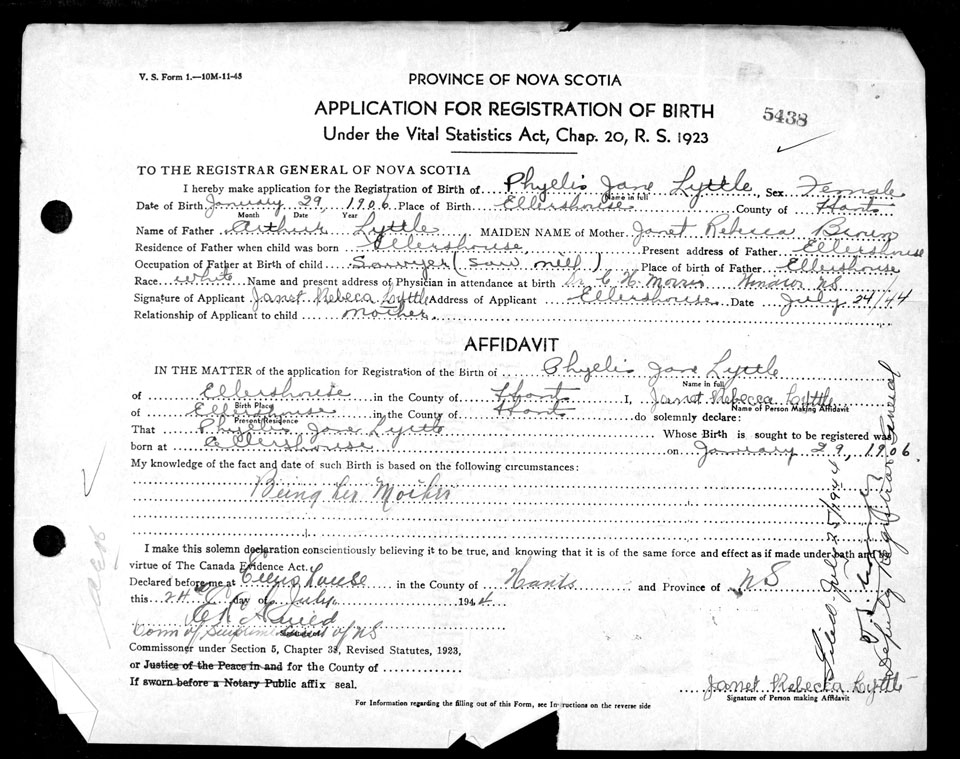 V. S. Form 1.—10M-11-43
PROVINCE OF NOVA SCOTIA
APPLICATION FOR REGISTRATION OF BIRTH
5438
Under the Vital Statistics Act, Chap. 20, R. S. 1923
TO THE REGISTRAR GENERAL OF NOVA SCOTIA
I hereby make application for the Registration of Birth of Phyllis Jane Lyttle, Sex Female
Name in full
Date of Birth January 29, 1906 Place of Birth Ellershouse County of Hants
Month Date Year
Name of Father Arthur Lyttle MAIDEN NAME of Mother Janet Rebecca
Residence of Father when child was born Ellershouse Present address of Father Ellershouse
Occupation of Father at Birth of child Sawyer (saw mill) Place of birth of Father Ellershouse
Race white Name and present address of Physician in attendance at birth Morris Windsor NS
Signature of Applicant Janet Rebeca Lyttle Address of Applicant Ellershouse Date July 24/44
Relationship of Applicant to child mother.
AFFIDAVIT
IN THE MATTER of the application for Registration of the Birth of Phyllis Jane Lyttle
Name in full
of Ellershouse in the County of Hants I, Janet Rebecca Lyttle
Birth Place
Name of Person Making Affidavit
of Ellershouse in the County of Hants do solemnly declare:
Present Residence
That Phyllis Jane Lyttle Whose Birth is sought to be registered was
born at Ellershouse on January 29, 1906.
My knowledge of the fact and date of such Birth is based on the following circumstances:
Being her Mother
I make this solemn declaration conscientiously believing it to be true, and knowing that it is of the same force and effect as if made under oath and by
virtue of The Canada Evidence Act.
Declared before me at Ellershouse in the County of Hants and Province of NS
this 24 day of July 1944
Com of Supreme Court of NS
Commissoner under Section 5, Chapter 38, Revised Statutes, 1923,
or Justice of the Peace in and for the County of
If sworn before a Notary Public affix seal.
Janet Rebecca Lyttle
Signature of Person making Affidavit
For Information regarding the filling out of this Form, see Instructions on the reverse side
Filed July 25/1944
Deputy Registrar General